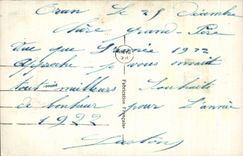 Oran Le 28 Décembre
Chère grand-Père
Vue que l'Année 1922
approche je vous envoit
tout mes meilleurs Souhaits
de bonheur pour l'année
1922
Gaston
Fabrication Française